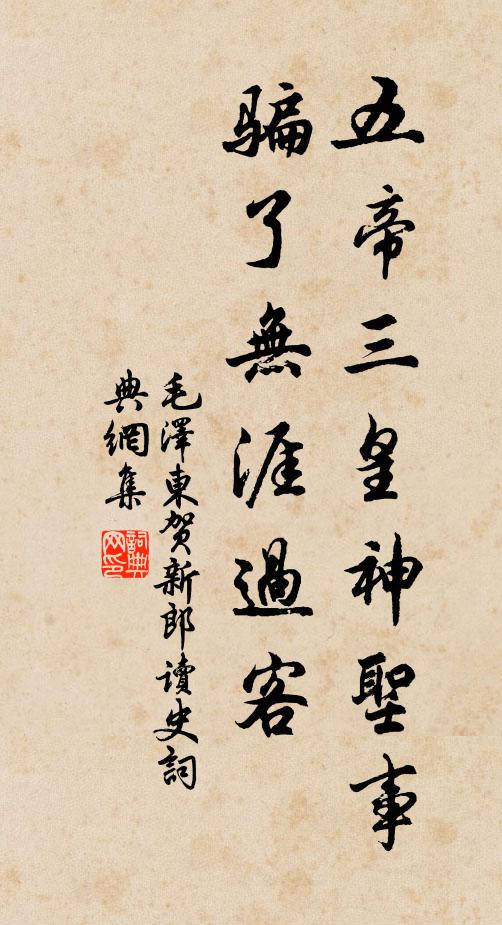 五帝三皇神聖事
騙了無涯過客
毛澤東贺新郎讀史詞
典網集
詞典
网印